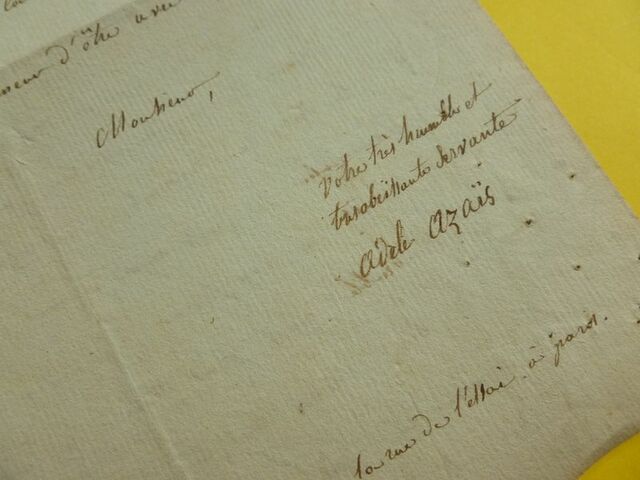 d'être avec
Monsieur,
Votre très humble et
très obéissante servante
adele azaïs
la rue de l'essai. à paris.